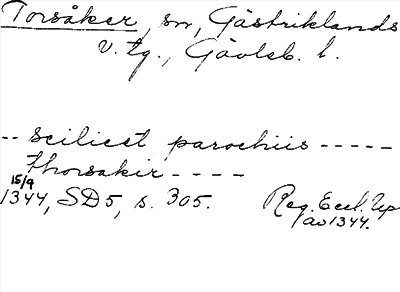 Torsåker, sn, Gästriklands
v. tg., Gävleb. l.
-- sciliect parochiis -----
thorsakir ----
15/9
1344, SD5, s. 305. Reg. Eccl. Up
av 1344.